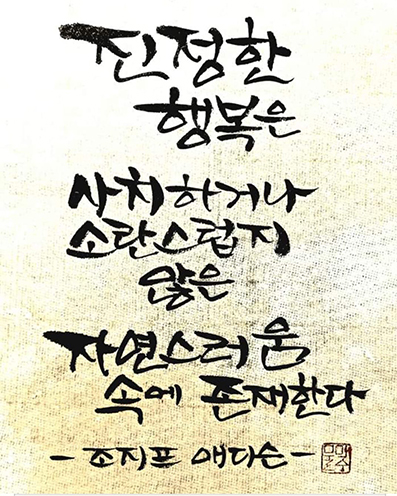 진정한
행복은
사치하거나
소란스럽지
않은
자연스러움
속에 존재한다
- 조지프 애디슨 -